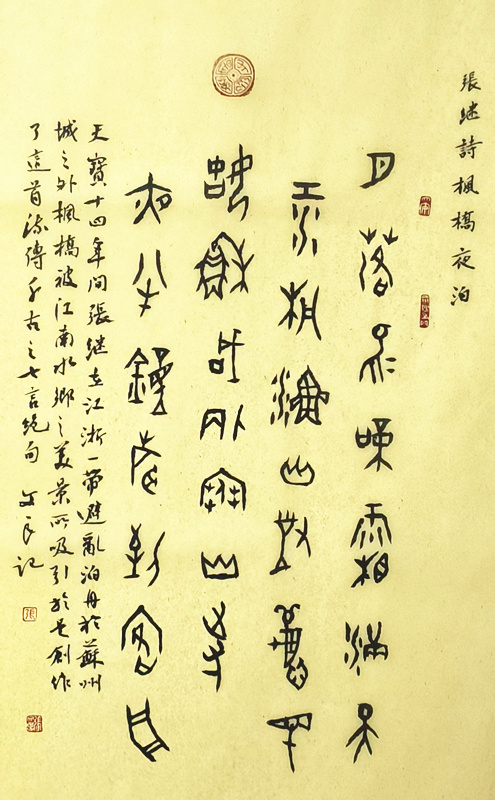 張继詩楓橋夜泊
月落烏啼霜滿天
江楓漁火對愁眠
姑蘇城外寒山寺
夜半鐘聲到客船
天寶十四年间張继在江浙一帶避亂泊舟於蘇州
城之外楓橋被江南水鄉之美景所吸引於是創作
了這首流傳千古之七言绝句 記